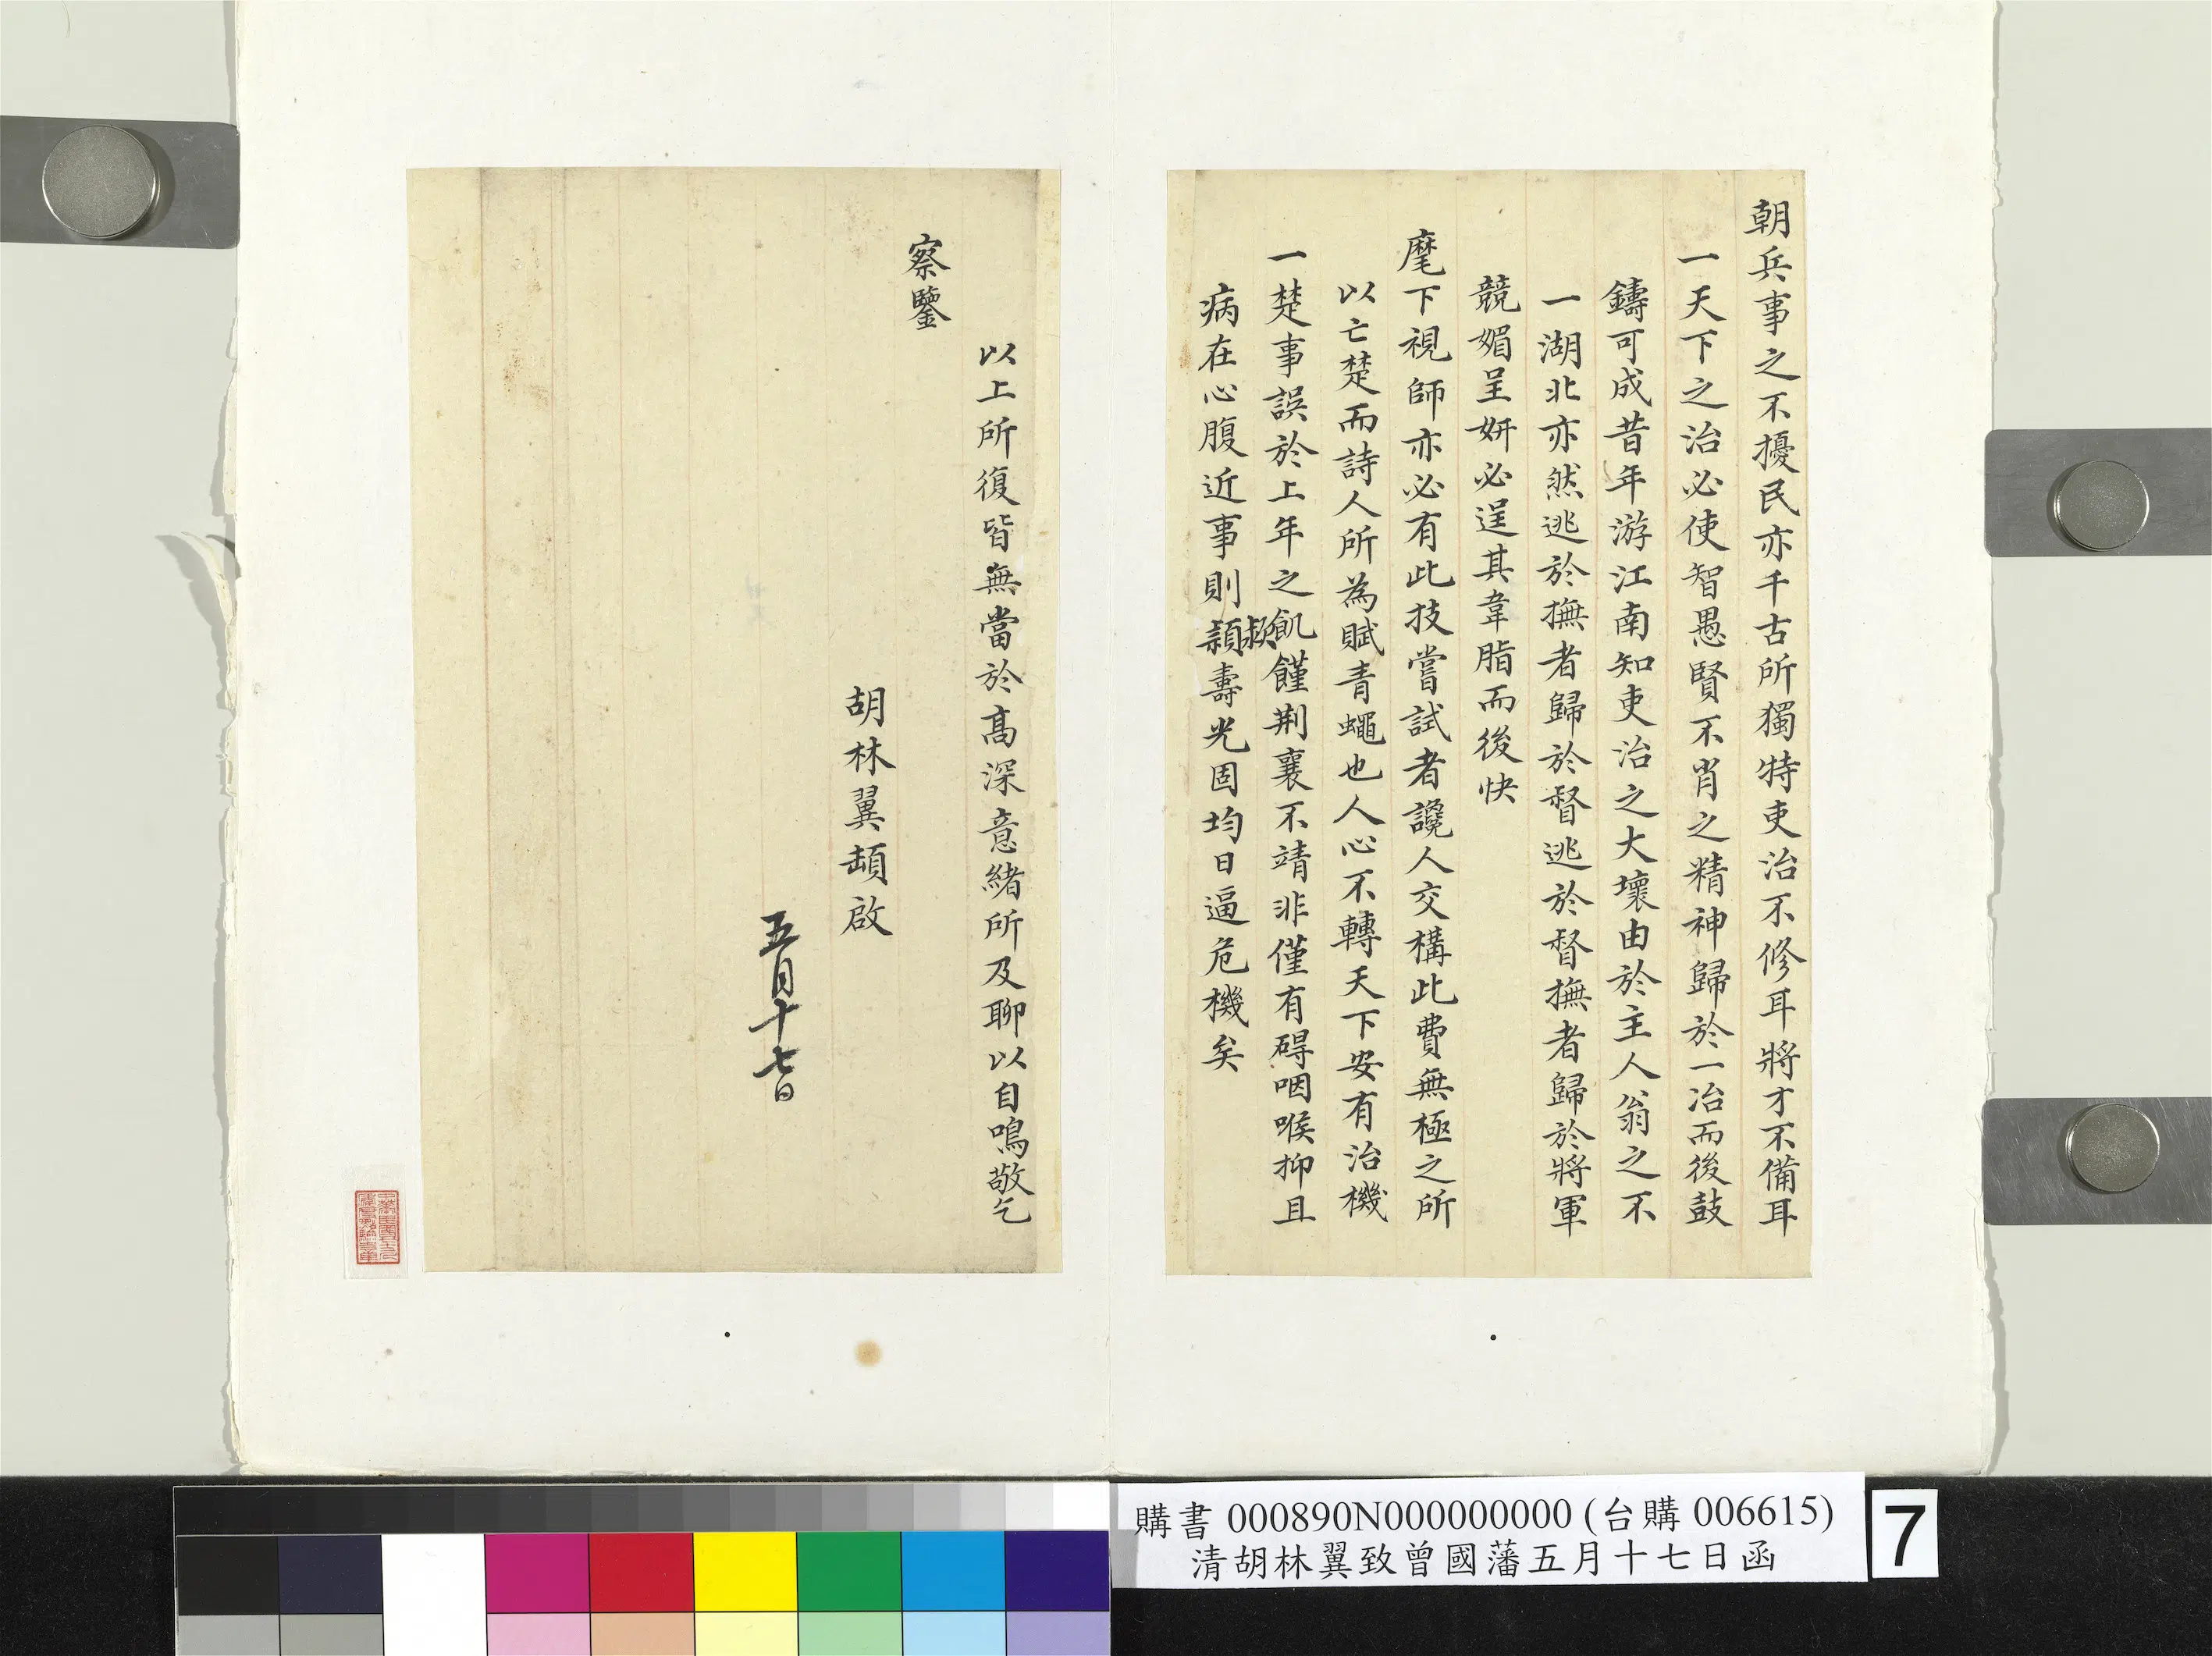 朝兵事之不擾民亦千古所獨特吏治不修耳將才不備耳
一天下之治必使智愚賢不肖之精神歸於一冶而後鼓
鑄可成昔年游江南知吏治之大壞由於主人翁之不
一湖北亦然逃於撫者歸於督逃於督撫者歸於將軍
競媚呈妍必逞其韋脂而後快
麾下視師亦必有此技嘗試者讒人交構此費無極之所
以亡楚而詩人所為賦青蠅也人心不轉天下安有治機
一楚事誤於上年之飢饉荆襄不靖非僅有碍咽喉抑且
病在心腹近事則潁壽光固均日逼危機矣
以上所復皆無當於高深意緒所及聊以自鳴敬乞
察鑒
胡林翼頓啟
五月十七日
購書 000890N000000000 (台購 006615)
清胡林翼致曾國藩五月十七日函
7